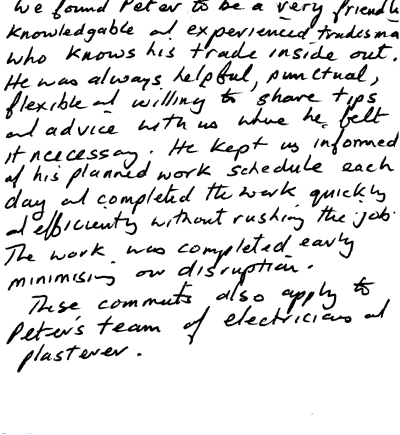 We found Peter to be a very friendly
knowledgable and experienced tradesma
who knows his trade inside out.
He was always helpful, punctual,
flexible and willing to share tips
and advice with us where he felt
it necessary. He kept us informed
of his planned work schedule each
day and completed the work quickly
and efficiently without rushing the job.
The work was completed early
minimising our disruption.
These comments also apply to
Peter's team of electricians and
plasterer.